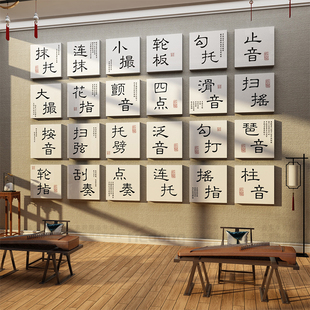 抹托
连抹
小撮
轮板
勾托
止音
大撮
花指
颤音
四点
滑音
扫摇
按音
扫弦
托劈
泛音
勾打
琶音
轮指
刮奏
点奏
连托
摇指
柱音